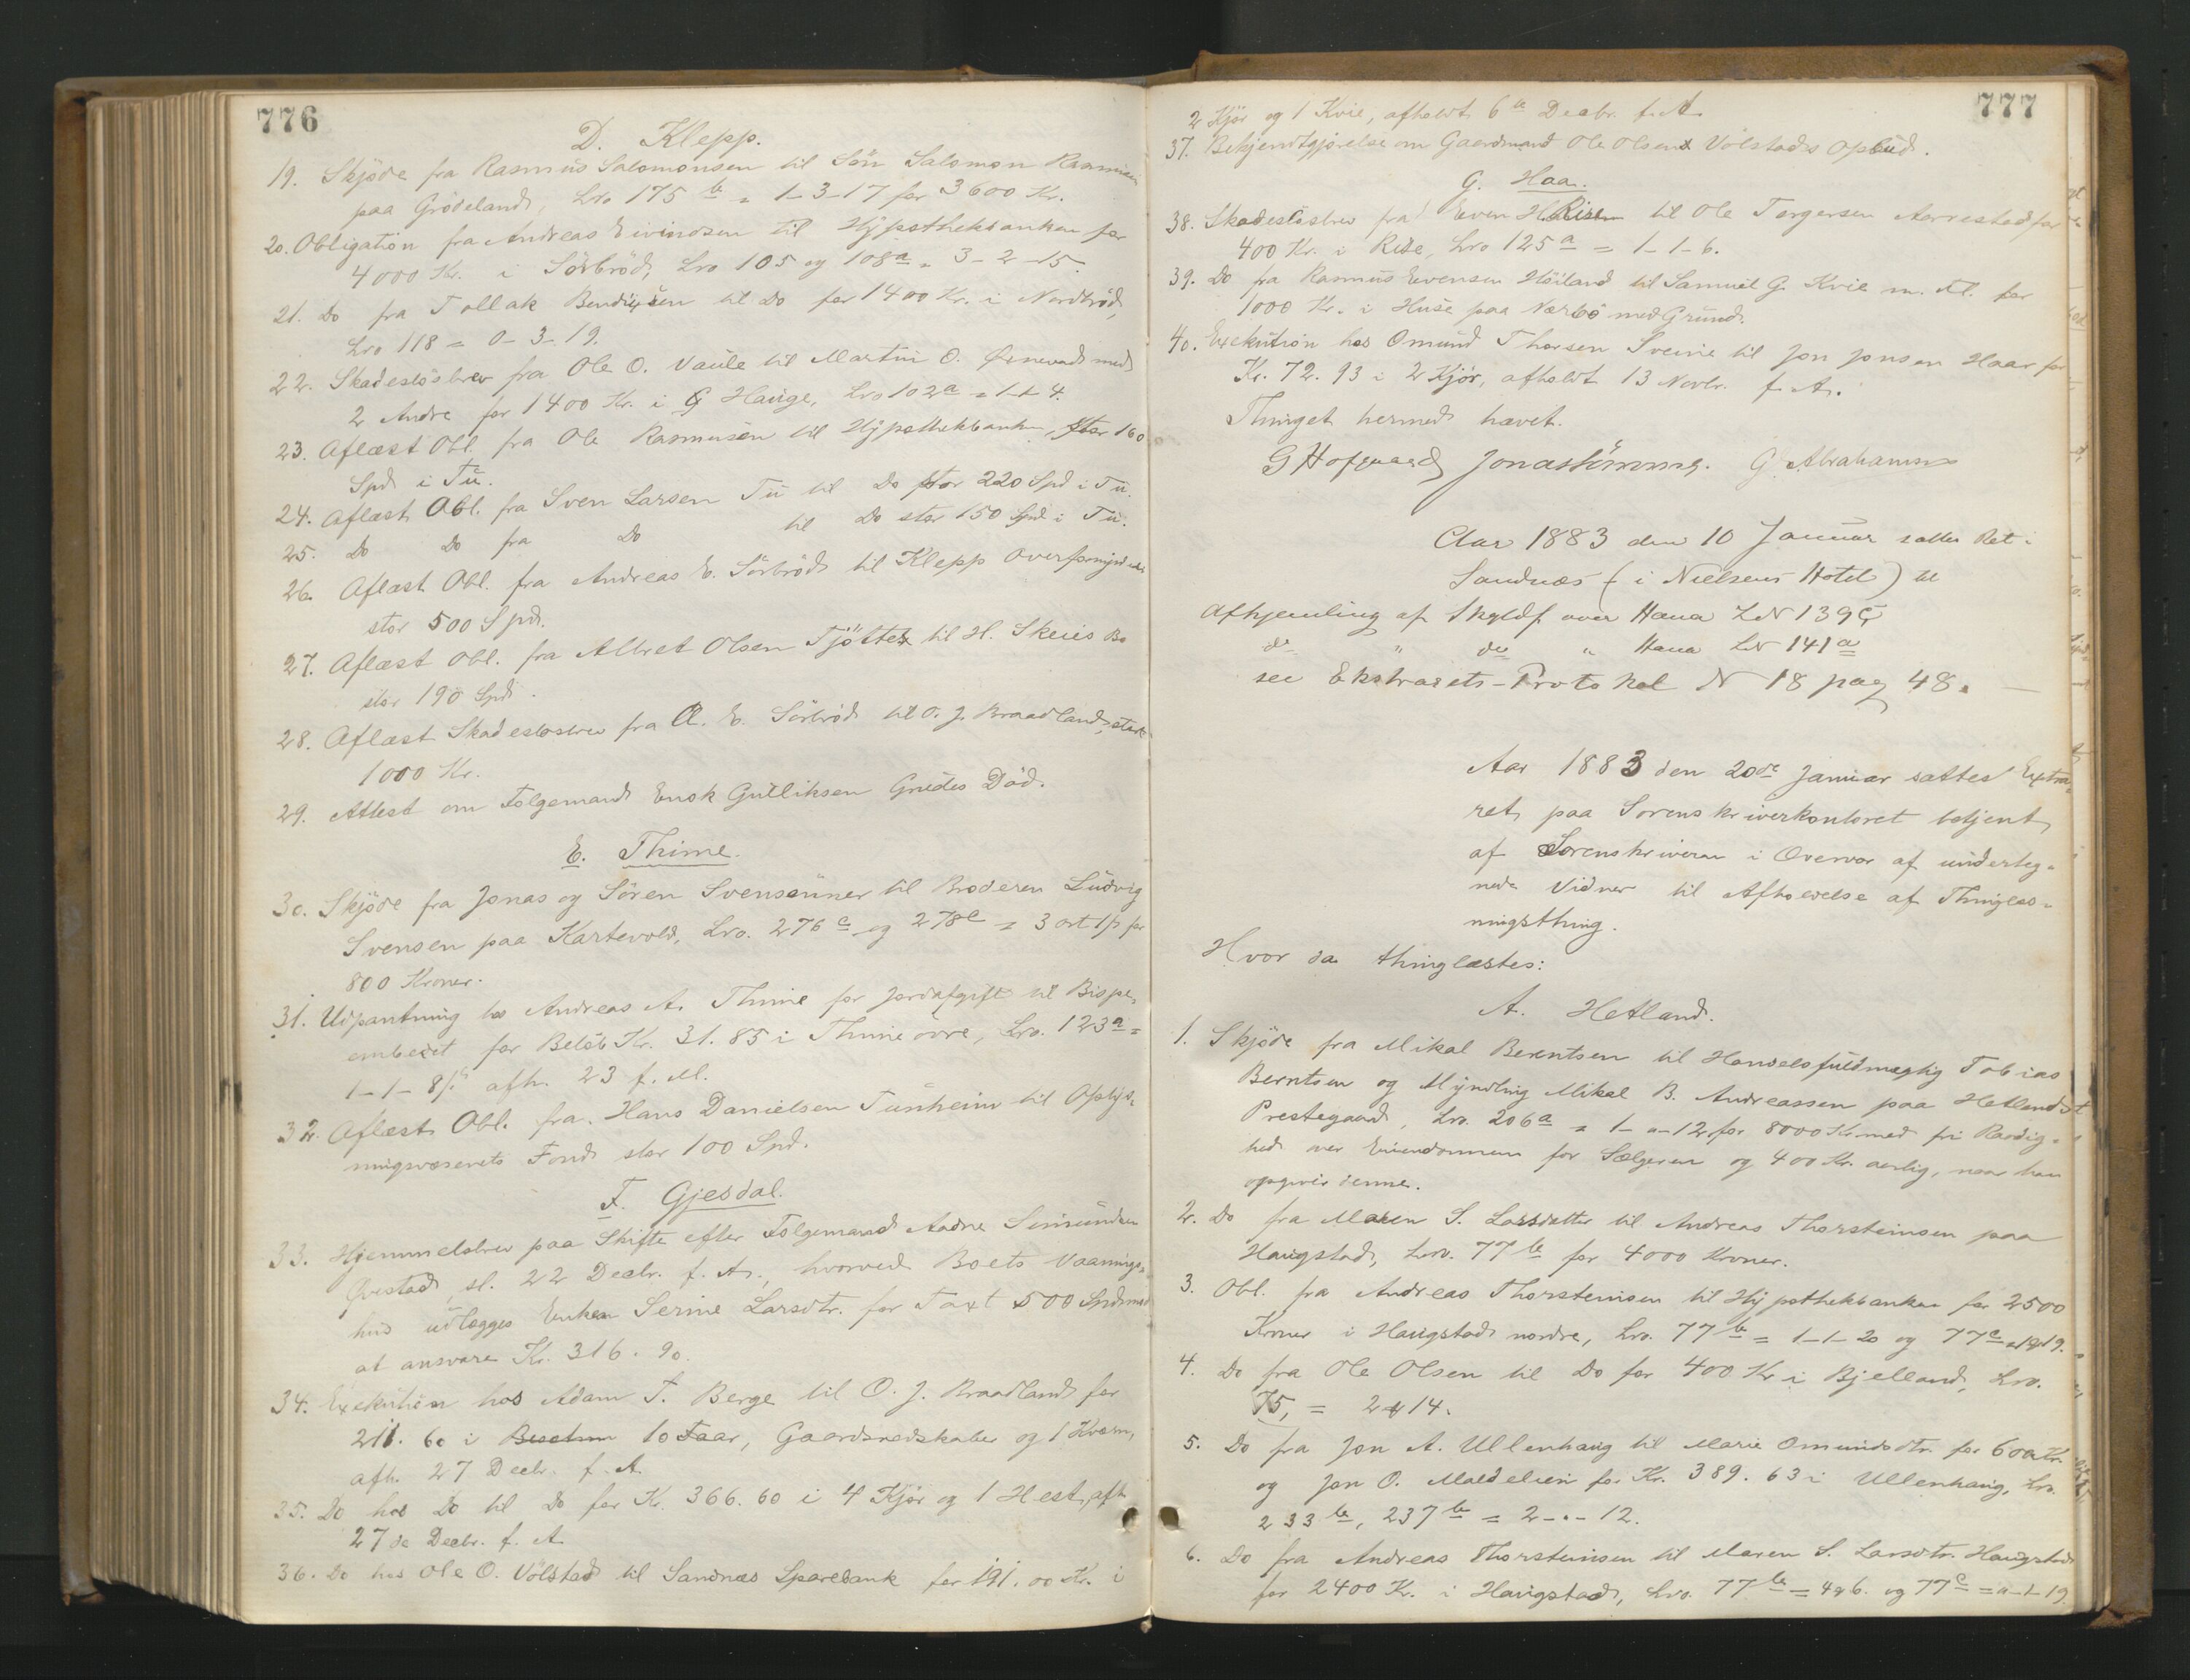 776
D. Klepp.
19. Skjöde fra Rasmus Salomonsen til Sön Salomon Rasmusen
paa Grödeland, Lro 175 b = 1-3-17 for 3600 Kr.
20. Obligation fra Andreas Eivindsen til Hypothekbanken for
4000 Kr. i Sörbröd, Lro 105 og 108a = 3-2-15.
21. Do fra Tollak Bendixsen til Do for 1400 Kr. i Nordbröd,
Lro 118 = 0-3-19.
22. Skadeslösbrev fra Ole O. Vaule til Martin O. Öxnevad med
2 Andre for 1400 Kr. i Hauge, Lro 102a
23. Aflæst Obl. fra Ole Rasmusen til Hypothekbanken, stor 160
Spd i Tu.
24. Aflæst Obl. fra Sven Larsen Tu til Do stor 220 Spd i Tu.
25. Do Do fra Do til Do stor 150 Spd i Tu.
26. Aflæst Obl. fra Andreas E. Sörbröd til Klepp Overformynderi
stor 500 Spd.
27. Aflæst Obl. fra Albret Olsen Tjötta til H. Skeies Bo
stor 190 Spd.
28. Aflæst Skadeslosbrev fra A. E. Sörbröd til O. J. Braadland, stort
1000 Kr.
29. Attest om Folgemand Enok Gulliksen Grudes Död.
E. Thime.
30. Skjöde fra Jonas og Sören Svensönner til Broderen Ludvig
Svensen paa Kartevold, Lro. 276 c og 278 c = 3 ort 1 /3 for
800 Kroner.
31. Udpantning hos Andreas A. Thime for Jordafgift til Bispe-
embedet for Belöb Kr. 31.85 i Thime övre, Lro. 123a =
1-1-8 /3 afh. 23 f. M.
32. Aflæst Obl. fra Hans Danielsen Tunheim til Oplys-
ningsvæsenets Fond stor 100 Spd.
F. Gjesdal.
33. Hjemmelsbrev paa Skifte efter Folgemand Aadne Simundsen
Övestad, sl. 22 Decbr. f. A., hvorved Boets Vaanings-
hus udlægges Enken Serine Larsdtr. for Taxt 500 Spd mod
at ansvare Kr. 316.90.
34. Exekution hos Adam T. Berge til O. J. Braadland for
211.60 i 10 Faar, Gaardsredskaber og 1 Kværn,
afh. 27 Decbr. f. A.
35. Do hos Do til Do for Kr. 366.60 i 4 Kjör og 1 Hest, afh.
27de Decbr. f. A.
36. Do hos Ole O. Völstad til Sandnæs Sparebank for 191.00 Kr. i
777
2 Kjör og 1 Kvie, afholdt 6te Decbr. f. A.
37. Bekjendtgjörelse om Gaardmand Ole Olsens Völstads Opbud.
G. Haa.
38. Skadeslösbrev fra Even H. Risen til Ole Torgersen Aarrestad for
400 Kr. i Rise, Lro 125a = 1-1-6.
39. Do fra Rasmus Evensen Höiland til Samuel G. Kvie m. Fl. for
1000 Kr. i Huse paa Nærbö med Grund.
40. Exekution hos Omund Thorsen Sveine til Jon Jonsen Haar for
Kr. 72.93 i 2 Kjör, afholdt 13 Novbr. f. A.
Thinget hermed hævet.
G Hofgaard Jonas Lömming. G. Abrahamsen
Aar 1883 den 10 Januar sattes Ret i
Sandnæs (i Nielsens Hotel) til
Afhjemling af Skyldf over Hana LN 139c
do " do " Hana LN 141a
see Ekstrarets-Protokol N 18 pag 48. —
Aar 1883 den 20de Januar sattes Extra-
ret paa Sorenskriverkontoret betjent
af Sorenskriveren i Overvær af underteg-
nede Vidner til Afholdelse af Thinglæs-
ningsthing.
Hvor da thinglæstes:
A. Hetland.
1. Skjöde fra Mikal Berentsen til Handelsfuldmægtig Tobias
Berntsen og Myndling Mikal B. Andreassen paa Hetland
Prestegaard, Lro. 206a = 1-"-12 for 8000 Kr med fri Raadig-
hed over Eiendommen for Sælgeren og 400 Kr. aarlig, naar han
opgiver denne.
2. Do fra Maren S. Larsdatter til Andreas Thorsteinsen paa
Haugstad, Lro. 77 b for 4000 Kroner.
3. Obl. fra Andreas Thorsteinsen til Hypothekbanken for 2500
Kroner i Haugstad nordre, Lro. 77 b = 1-1-20 og 77 c
4. Do fra Ole Olsen til Do for 400 Kr i Bjelland, Lro.
75, = 2 " 14.
5. Do fra Jon A. Ullenhaug til Marie Omundsdtr. for 600 Kr.
og Jon O. for Kr. 389.63 i Ullenhaug, Lro.
233 b, 237 b = 2-"-12.
6. Do fra Andreas Thorsteinsen til Maren S. Larsdtr. Haugstad
for 2400 Kr. i Haugstad, Lro. 77 b = 4 " 6. og 77 c = "-1-19